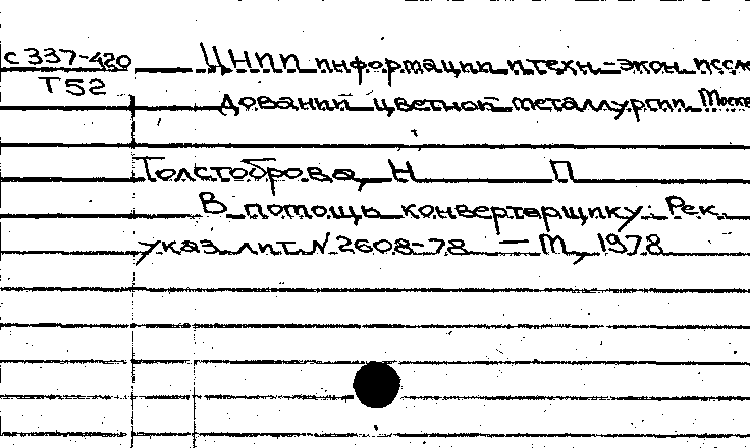 с 337-420 ЦНИИ информации и техн.-экон. иссле
Т52 дований цветной металлургии. Москв
Толстоброва, Н П
В помощь конвертерщику: Рек.
указ. лит. N 2608-78 — М, 1978